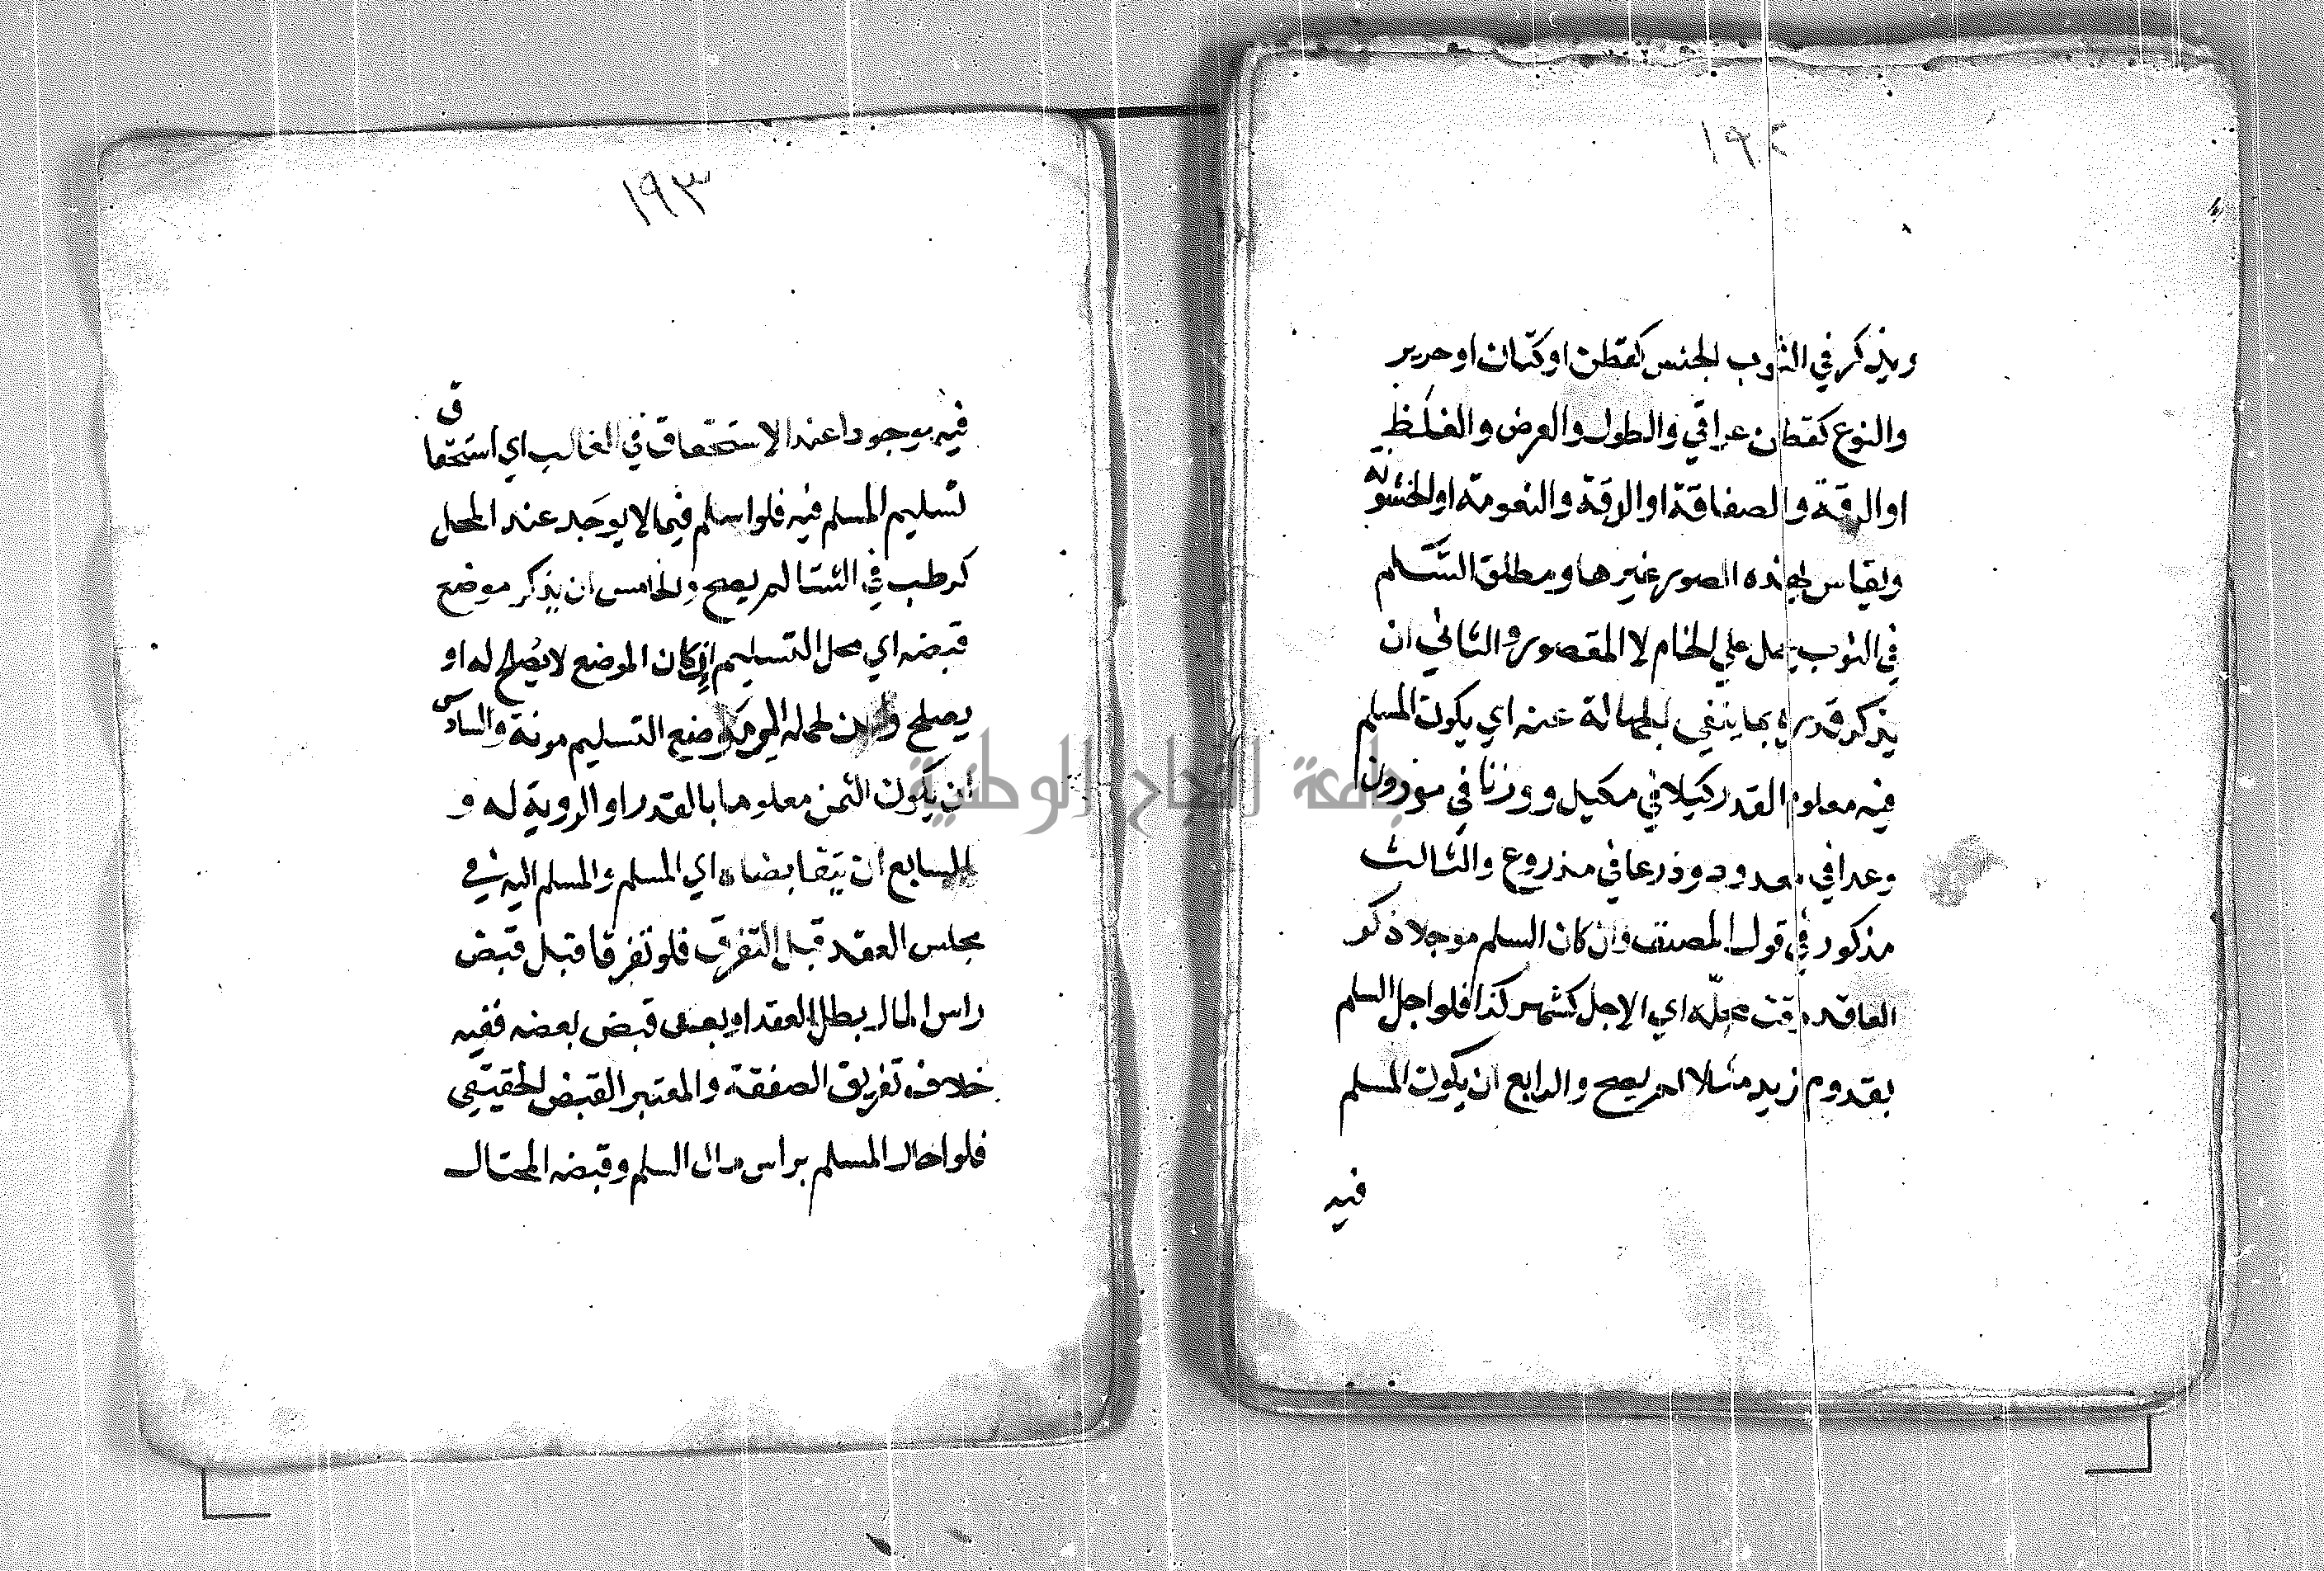 ١٩٢
ويذكر في الثوب الجنس كقطن او كتان او حرير
والنوع كقطن عراقي والطول والعرض والغلظ
او الرقة والصفاقة او الرقة والنعومة او الخشونة
ويقاس بهذه الصور غيرها ومطلق السلم
في الثوب يحمل علي الخام لا المقصور والثاني ان
يذكر قدره بما ينفي الجهالة عنه اي يكون المسلم
فيه معلوم القدر كيلا في مكيل ووزنا في موزون
وعدا في معدود وذرعا في مذروع والثالث
مذكور في قول المصنف وان كان السلم موجلا ذكر
العاقد وقت محله اي الاجل كشهر كذا فلو اجل السلم
بقدوم زيد مثلا لم يصح والرابع ان يكون المسلم
فيه
١٩٣
فيه موجودا عند الاستحقاق في الغالب اي استحقاق
تسليم المسلم فيه فلو اسلم فيما لا يوجد عند المحل
كرطب في الشتا لم يصح والخامس ان يذكر موضع
قبضه اي محل التسليم ان كان الموضع لا يصلح له او
يصلح ولكن لحمله الي موضع التسليم مونة والسادس
ان يكون الثمن معلوما بالقدر او الروية له و
السابع ان يتقابضاه اي المسلم والمسلم اليه في
مجلس العقد قبل التفرق فلو تفرقا قبل قبض
راس المال بطل العقد او بعد قبض بعضه ففيه
خلاف تفريق الصفقة والمعتبر القبض الحقيقي
فلو احال المسلم براس مال السلم وقبضه المحتال
جامعة النجاح الوطنية